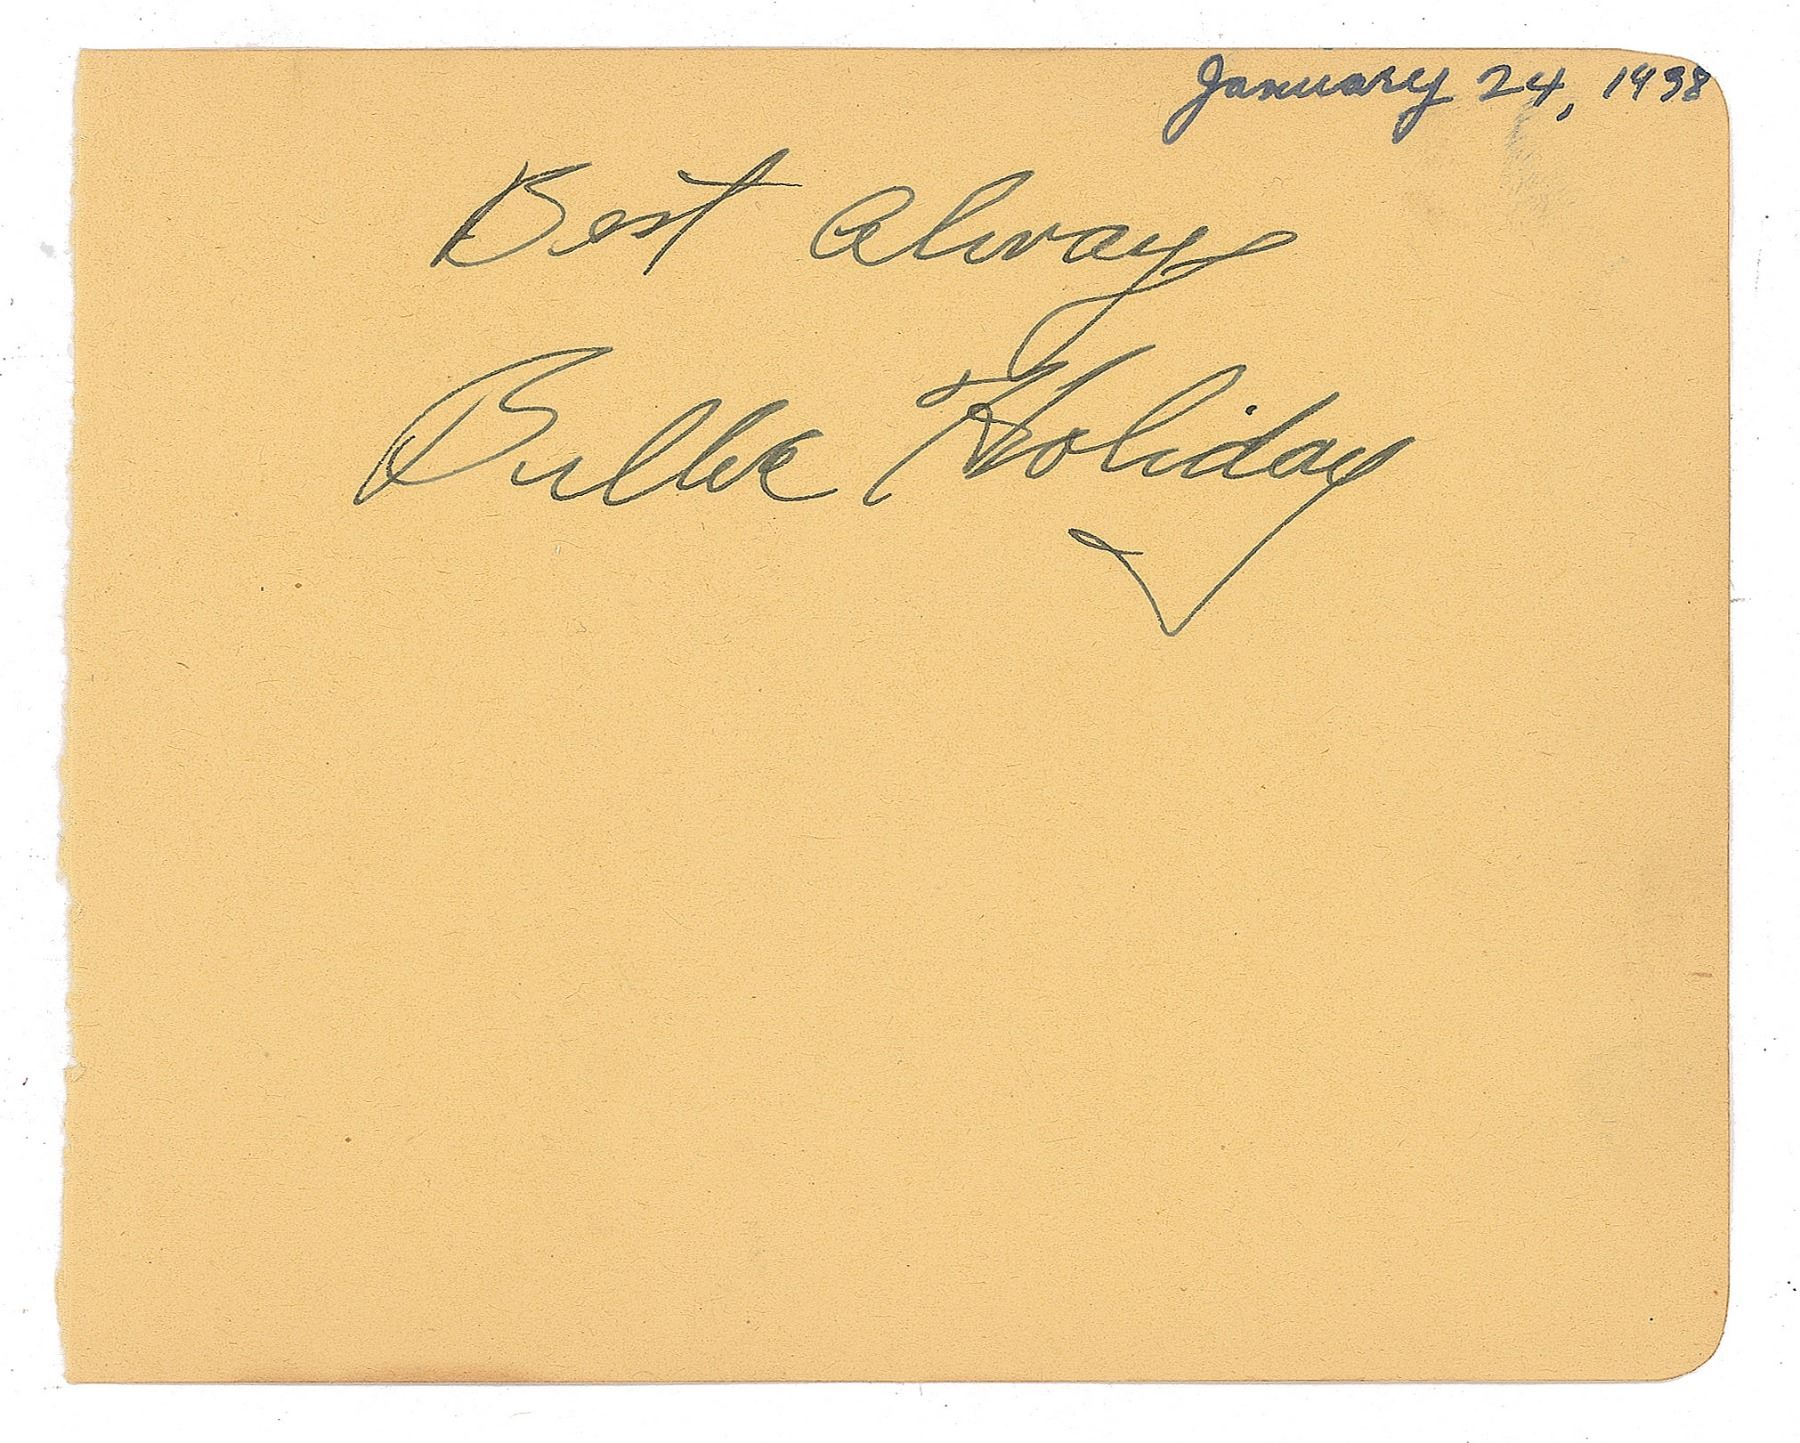 January 24, 1938
Best Always
Billie Holiday